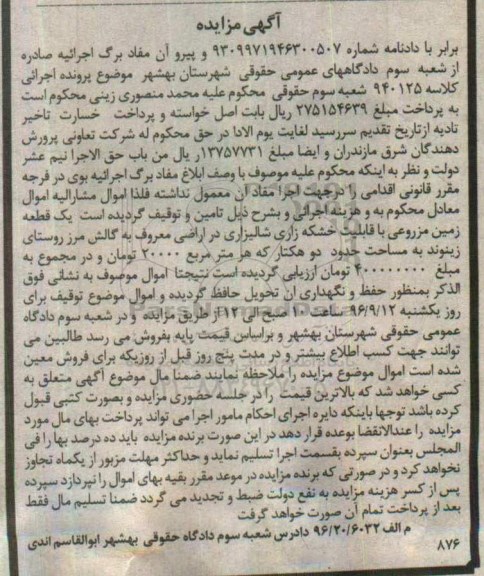 آگهی مزایده
برابر با دادنامه شماره ۹۳۰۹۹۷۱۹۴۶۳۰۰۵۰۷ و پیرو آن مفاد برگ اجرائیه صادره
از شعبه سوم دادگاههای عمومی حقوقی شهرستان بهشهر موضوع پرونده اجرائی
کلاسه ۹۴۰۱۲۵ شعبه سوم حقوقی محکوم علیه محمد منصوری زینی محکوم است
به پرداخت مبلغ ۲۷۵۱۵۴۶۳۹ ریال بابت اصل خواسته و پرداخت خسارت تاخیر
تادیه ازتاریخ تقدیم سررسید لغایت یوم الادا در حق محکوم له شرکت تعاونی پرورش
دهندگان شرق مازندران و ایضا مبلغ ۱۳۷۵۷۷۳۱ر یال من باب حق الاجرا نیم عشر
دولت و نظر به اینکه محکوم علیه موصوف با وصف ابلاغ مفاد برگ اجرائیه بوی در فرجه
مقرر قانونی اقدامی را درجهت اجرا مفاد آن معمول نداشته فلذا اموال مشارالیه اموال
معادل محکوم به و هزینه اجرائی و بشرح ذیل تامین و توقیف گردیده است یک قطعه
زمین مزروعی با قابلیت خشکه زاری شالیزاری در اراضی معروف به گالش مرز روستای
زینوند به مساحت حدود دو هکتار که هر متر مربع ۲۰۰۰۰ تومان و در مجموع به
مبلغ ۴۰۰۰۰۰۰۰۰ تومان ارزیابی گردیده است نتیجتا اموال موصوف به نشانی فوق
الذکر بمنظور حفظ و نگهداری آن تحویل حافظ گردیده و اموال موضوع توقیف برای
روز یکشنبه ۹۶/۹/۱۲ ساعت ۱۰ صبح الی ۱۲ از طریق مزایده و در شعبه سوم دادگاه
عمومی حقوقی شهرستان بهشهر و براساس قیمت پایه بفروش می رسد طالبین می
توانند جهت کسب اطلاع بیشتر و در مدت پنج روز قبل از روزیکه برای فروش معین
شده است اموال موضوع مزایده را ملاحظه نمایند ضمنا مال موضوع آگهی متعلق به
کسی خواهد شد که بالاترین قیمت را در جلسه حضوری مزایده و بصورت کتبی قبول
کرده باشد توجها باینکه دایره اجرای احکام مامور اجرا می تواند پرداخت بهای مال مورد
مزایده را عندالانقضا بوعده قرار دهد در این صورت برنده مزایده باید ده درصد بها را فی
المجلس بعنوان سپرده بقسمت اجرا تسلیم نماید و حداکثر مهلت مزبور از یکماه تجاوز
نخواهد کرد و در صورتی که برنده مزایده در موعد مقرر بقیه بهای اموال را نپردازد سپرده
پس از کسر هزینه مزایده به نفع دولت ضبط و تجدید می گردد ضمنا تسلیم مال فقط
بعد از پرداخت تمام آن صورت خواهد گرفت
م الف ۹۶/۲۰/۶۰۳۲ دادرس شعبه سوم دادگاه حقوقی بهشهر ابوالقاسم اندی
۸۷۶